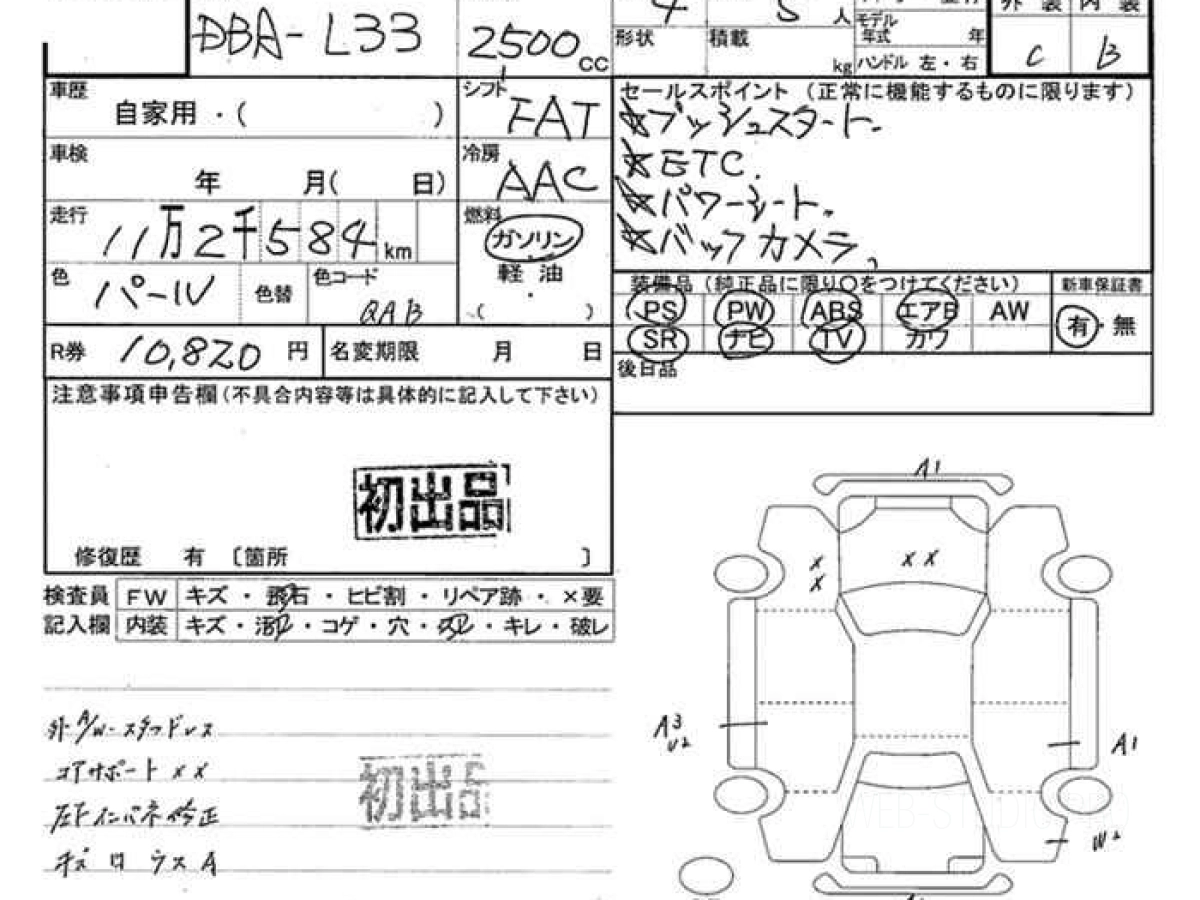 DBA-L33
2500cc
4
5人
形状
積載
kg
モデル
年式
年
ハンドル 左・右
外装 内装
C B
車歴
自家用・( )
シフト
FAT
セールスポイント (正常に機能するものに限ります)
☆プッシュスタート.
☆ETC.
☆パワーシート.
☆バックカメラ,
車検
年 月( 日)
冷房
AAC
走行
11万2千584km
燃料
ガソリン
軽油
( ・ )
色
パール
色替
色コード
QAB
装備品 (純正品に限り○をつけてください)
新車保証書
PS PW ABS エアB AW
SR ナビ TV カワ
有・無
R券 10,820円
名変期限 月 日
後日品
注意事項申告欄(不具合内容等は具体的に記入して下さい)
初出品
修復歴 有 〔箇所 〕
検査員 FW キズ・飛石・ヒビ割・リペア跡・×要
記入欄 内装 キズ・汚レ・コゲ・穴・スレ・キレ・破レ
外A/W-スタッドレス
コアサポート××
左Fインパネ修正
初出品
A1
× ×
×
×
A3
U2
A1
W2